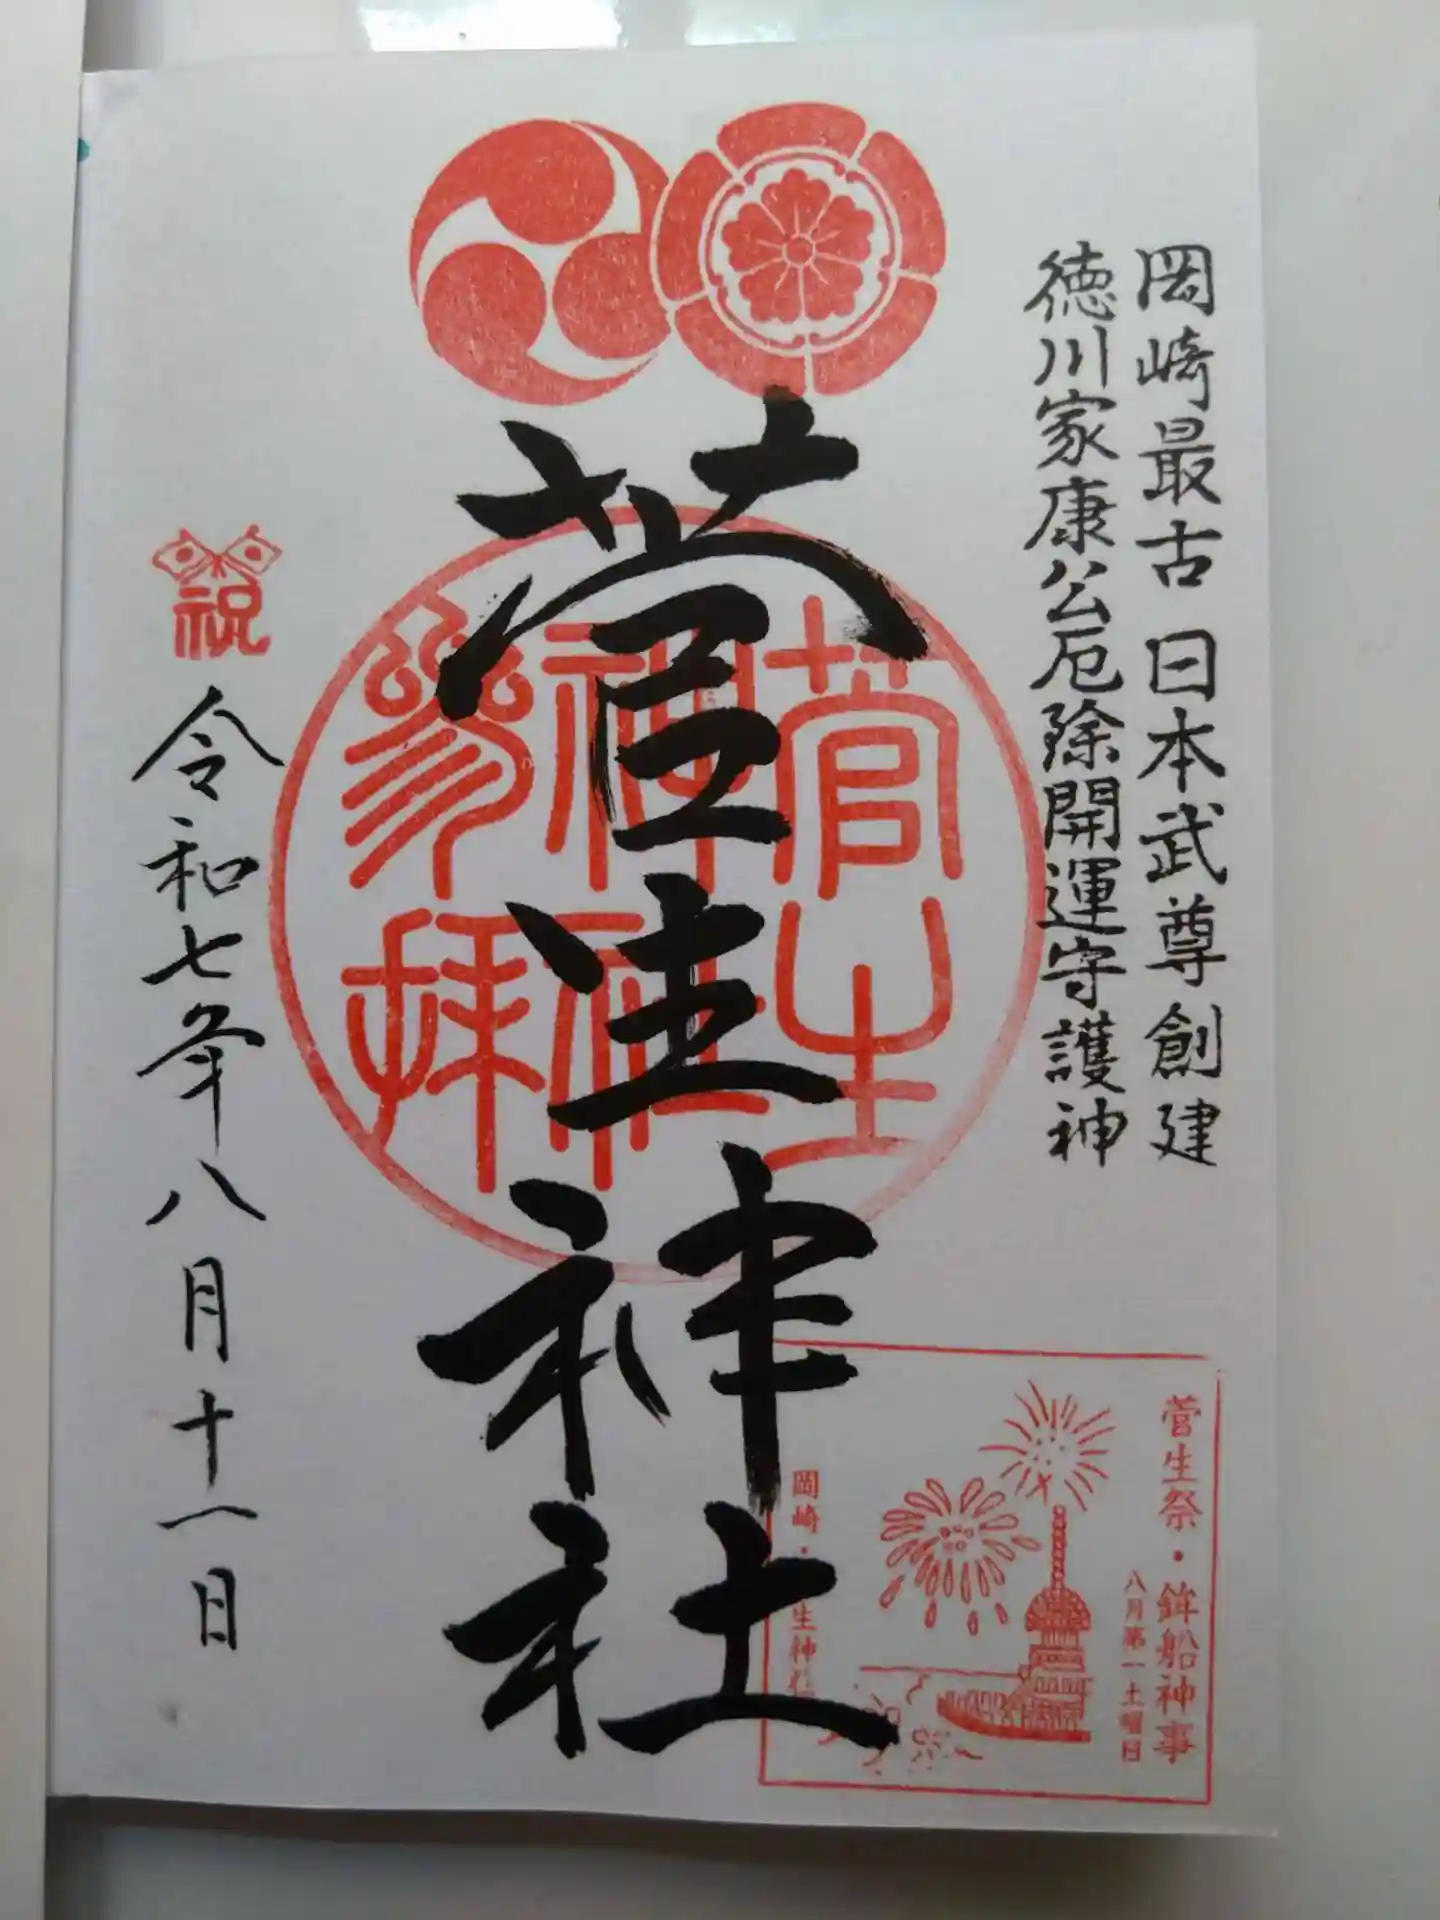 岡崎最古 日本武尊創建
徳川家康公厄除開運守護神
菅生神社
菅生
神社
参拝
祝
令和七年八月十一日
菅生祭・鉾船神事
八月第一土曜日
岡崎・生神社